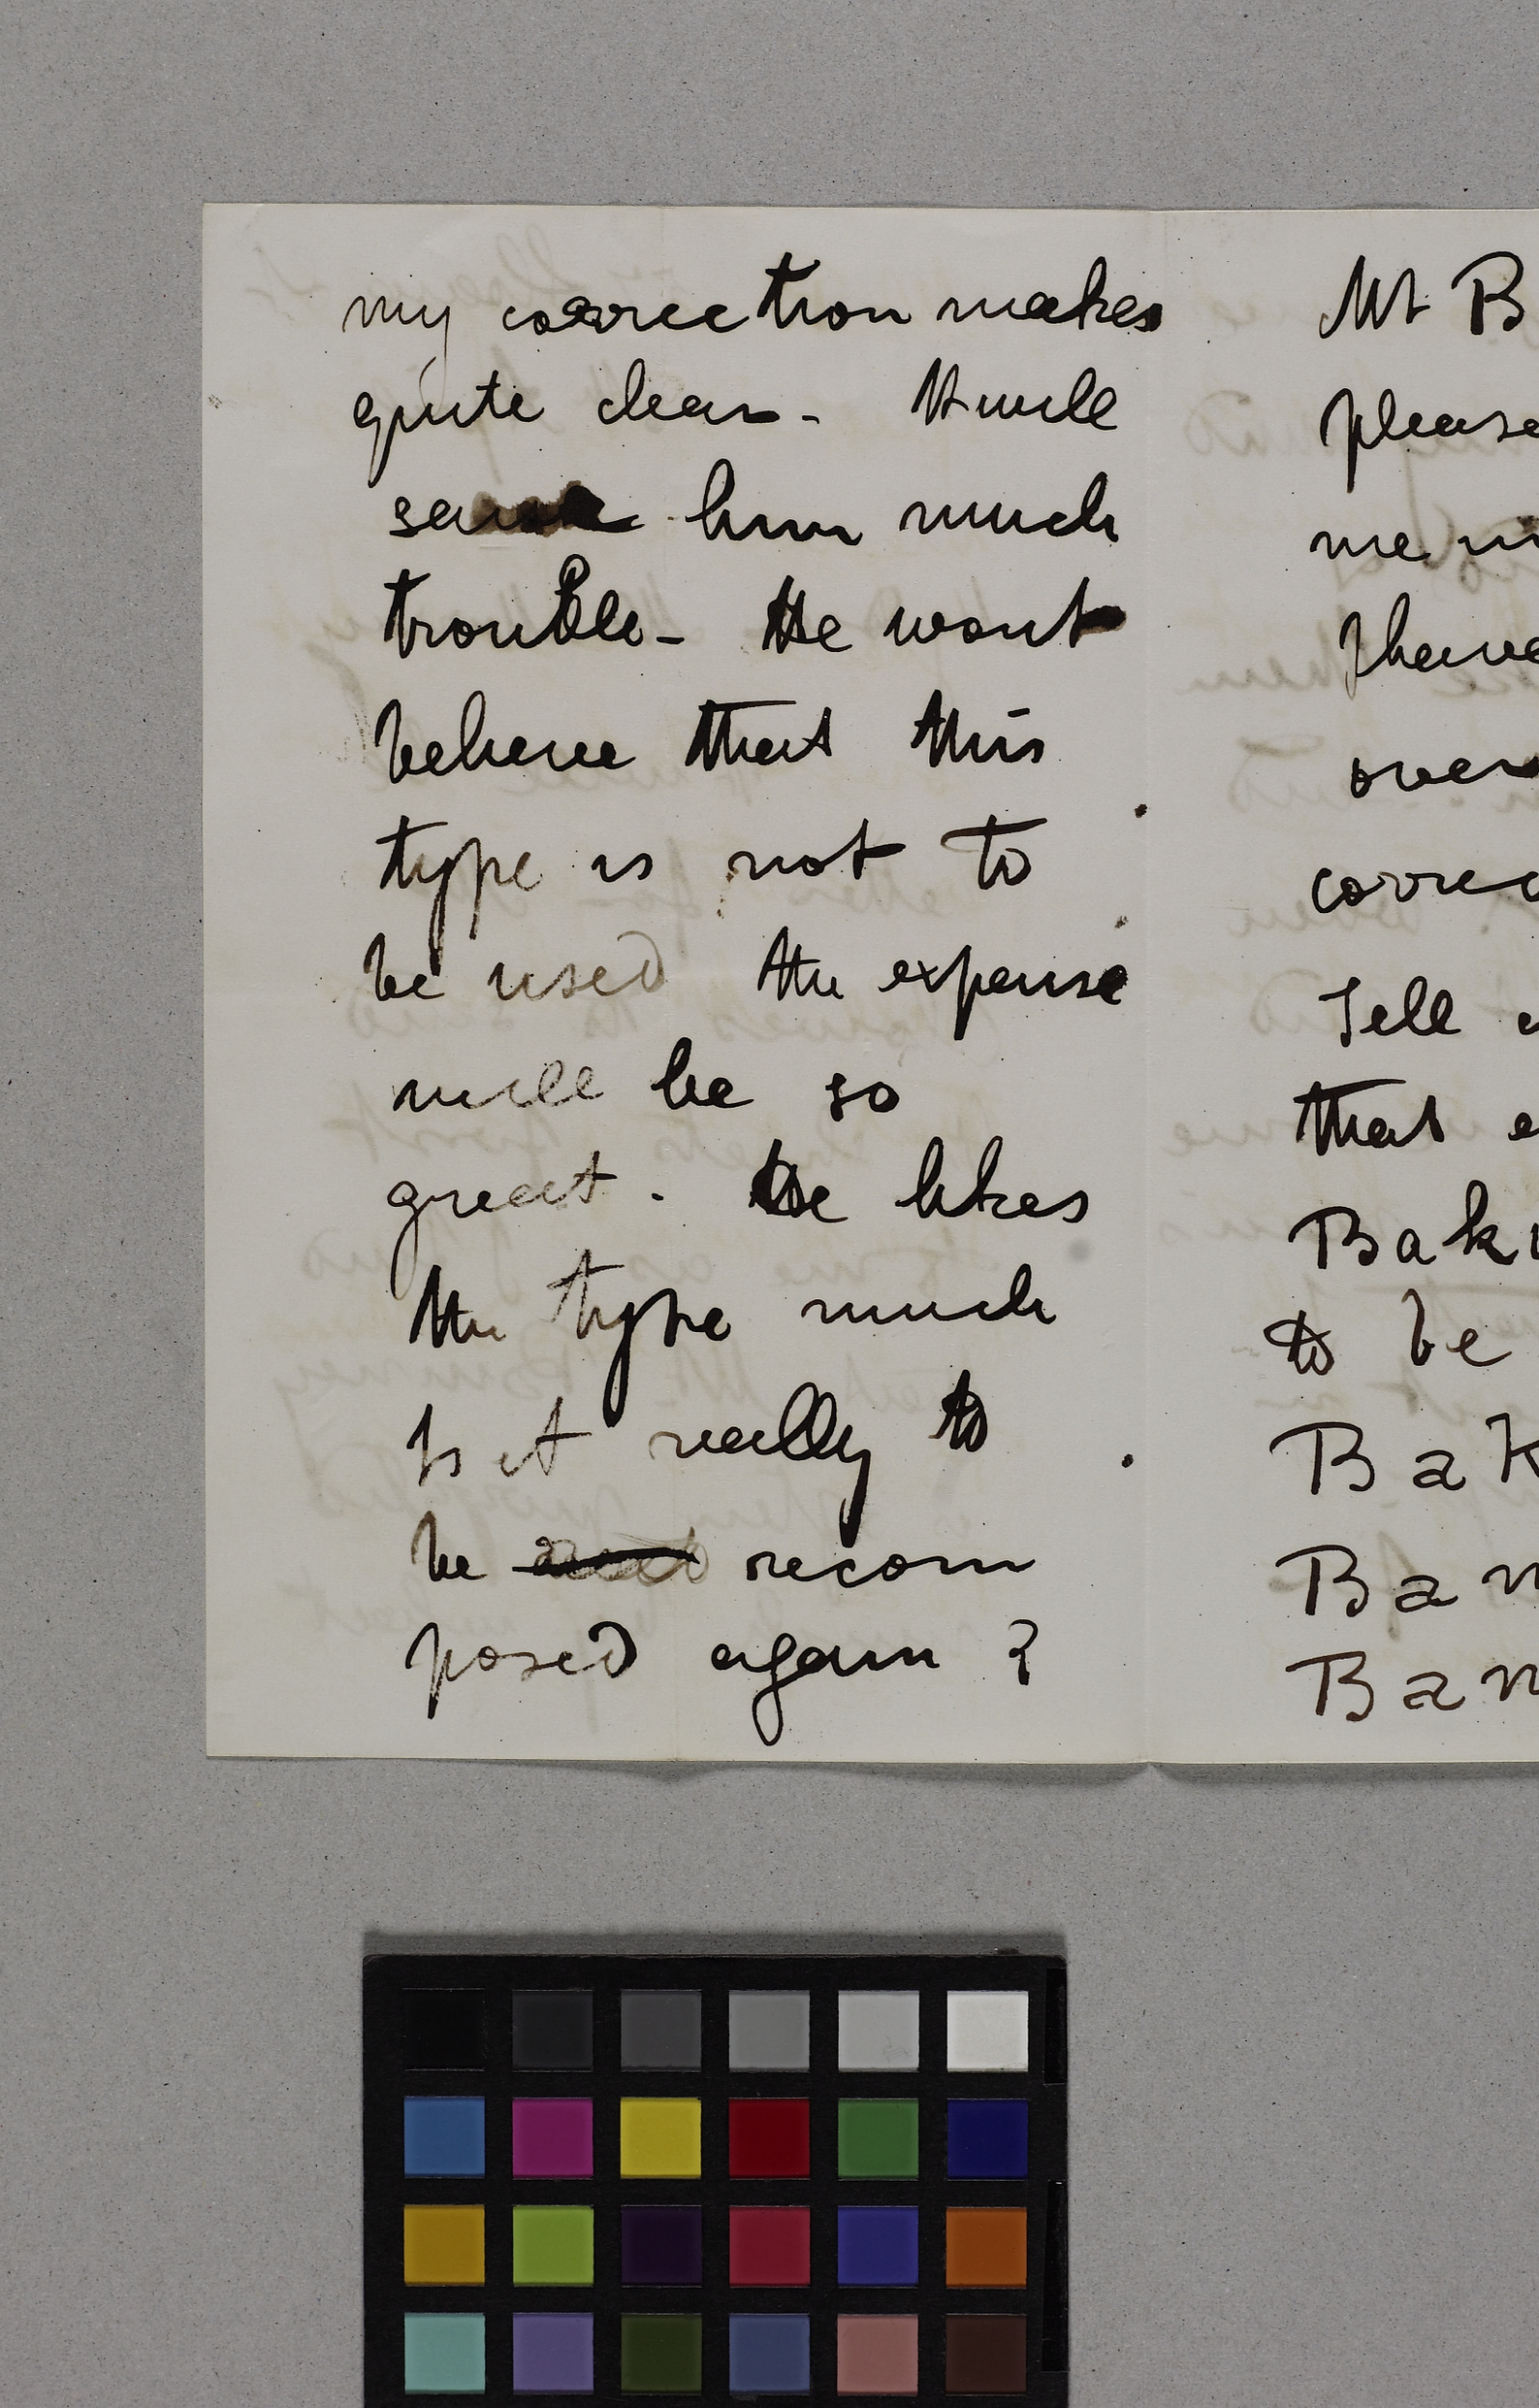 my correction makes
quite clear - It will
him much
trouble - He wont
believe that this
type is not to
be used the expense
will be so
great . He likes
the type much
Is it really to
be recom
posed again ?
Mr B
please
me
I have
over
correc
Tell
that
Bak
to be
Bak
Ban
Ban